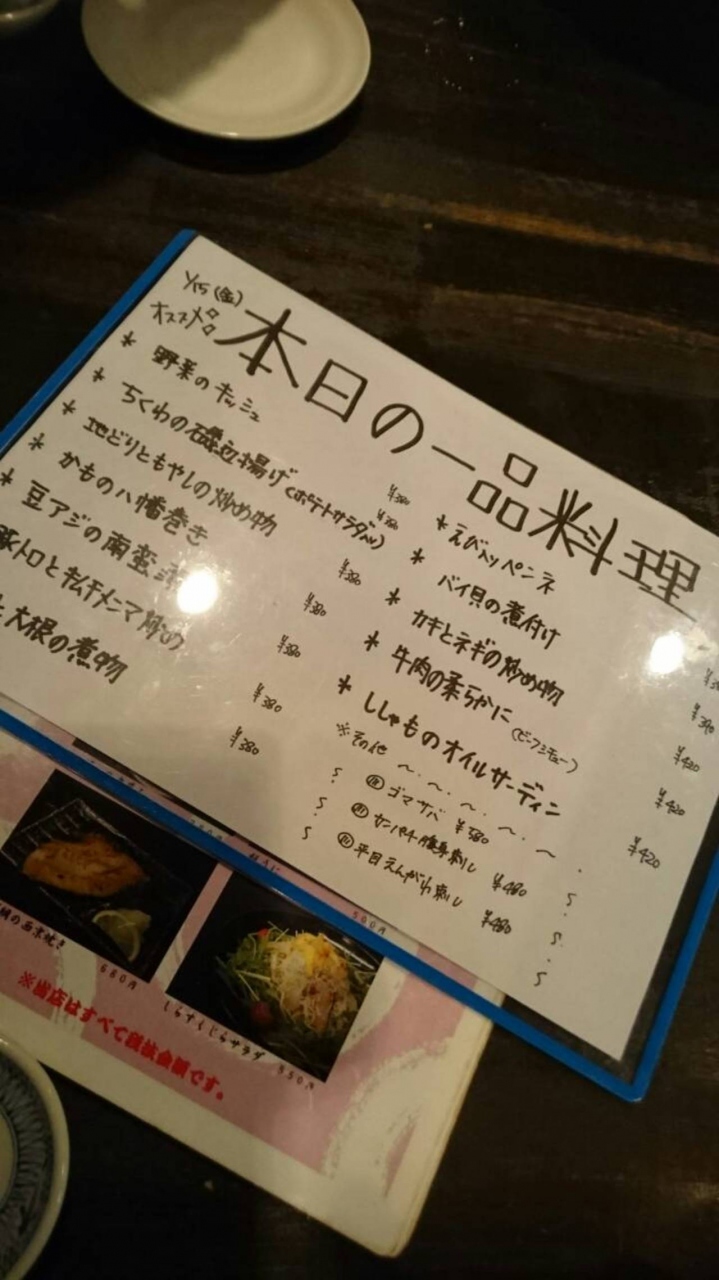 1/15(金)
オススメ
本日の一品料理
* 野菜のキッシュ ¥380
* ちくわの磯辺揚げ(ポテトサラダ入り) ¥380
* 地どりともやしの炒め物 ¥380
* かもの八幡巻き ¥380
* 豆アジの南蛮 ¥380
豚トロとキムチメンマ炒め ¥380
と大根の煮物 ¥380
* えび入りペンネ
* バイ貝の煮付け ¥390
* カキとネギの炒め物 ¥420
* 牛肉の柔らかに(ビーフシチュー) ¥420
* ししゃものオイルサーディン ¥420
※その他
ゴマサバ ¥580
カンパチ腹身刺し ¥480
平目えんがわ刺し ¥480
の西京焼き 680円
しらすくじらサラダ 550円
500円
※当店はすべて税抜金額です。